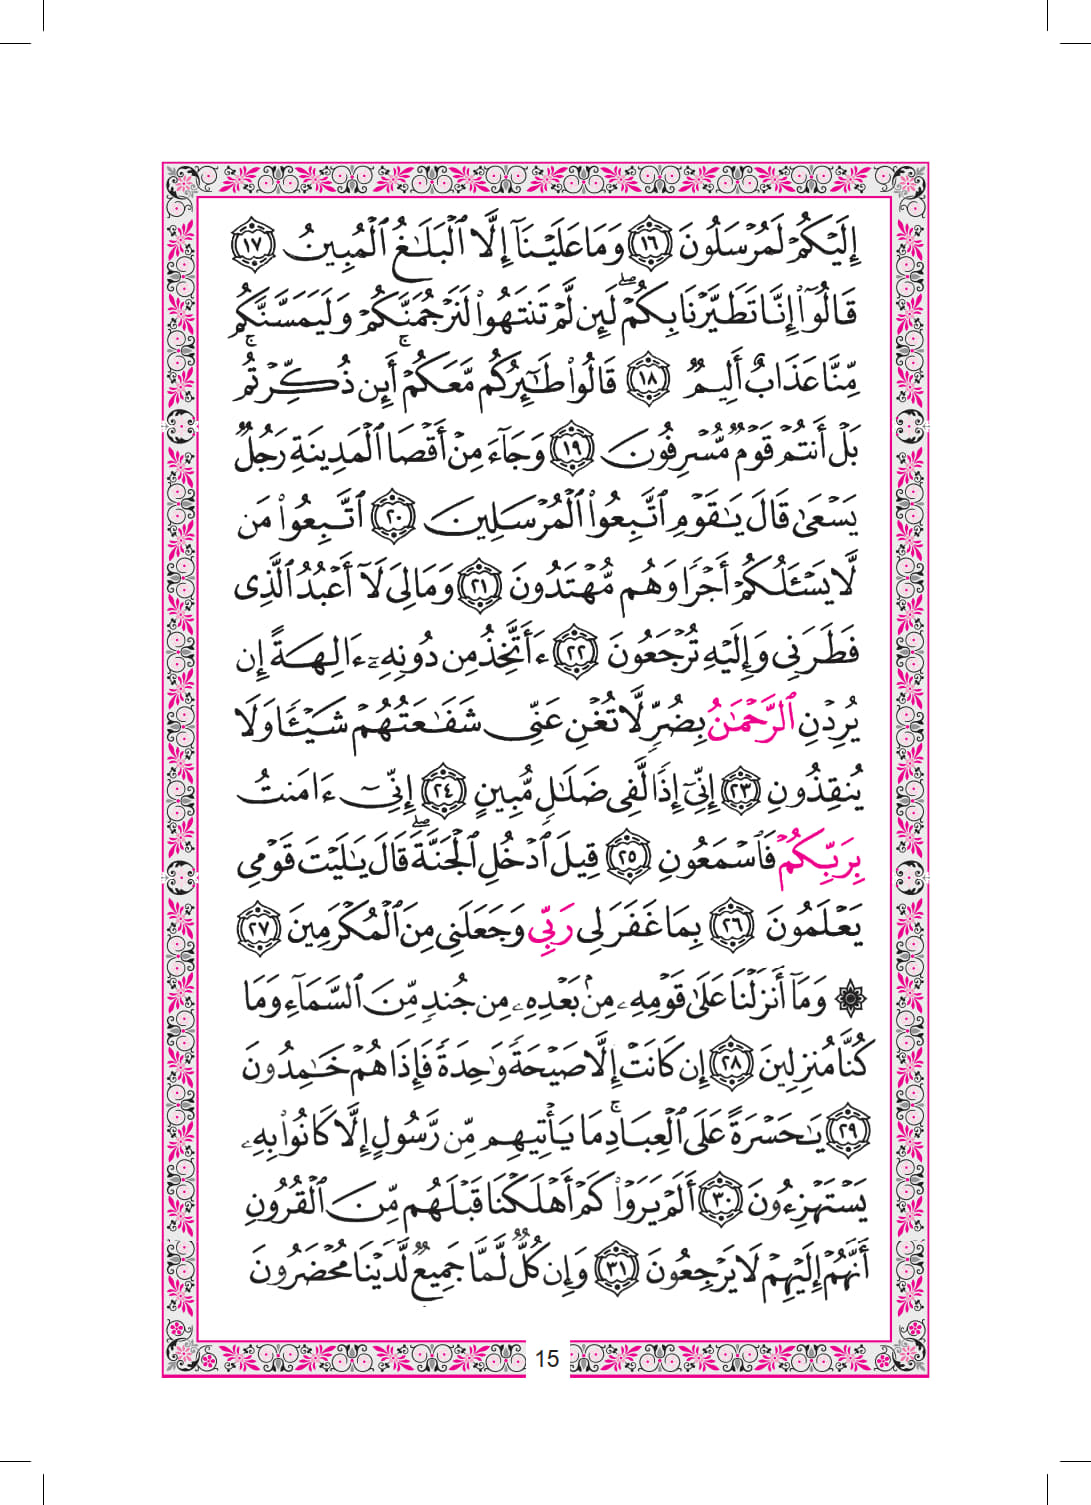 إِلَيْكُمْ لَمُرْسَلُونَ ١٦ وَمَا عَلَيْنَآ إِلَّا ٱلْبَلَٰغُ ٱلْمُبِينُ ١٧
قَالُوٓا۟ إِنَّا تَطَيَّرْنَا بِكُمْ ۖ لَئِن لَّمْ تَنتَهُوا۟ لَنَرْجُمَنَّكُمْ وَلَيَمَسَّنَّكُم
مِّنَّا عَذَابٌ أَلِيمٌ ١٨ قَالُوا۟ طَٰٓئِرُكُم مَّعَكُمْ ۚ أَئِن ذُكِّرْتُم ۚ
بَلْ أَنتُمْ قَوْمٌ مُّسْرِفُونَ ١٩ وَجَآءَ مِنْ أَقْصَا ٱلْمَدِينَةِ رَجُلٌ
يَسْعَىٰ قَالَ يَٰقَوْمِ ٱتَّبِعُوا۟ ٱلْمُرْسَلِينَ ٢٠ ٱتَّبِعُوا۟ مَن
لَّا يَسْـَٔلُكُمْ أَجْرًا وَهُم مُّهْتَدُونَ ٢١ وَمَا لِىَ لَآ أَعْبُدُ ٱلَّذِى
فَطَرَنِى وَإِلَيْهِ تُرْجَعُونَ ٢٢ ءَأَتَّخِذُ مِن دُونِهِۦٓ ءَالِهَةً إِن
يُرِدْنِ ٱلرَّحْمَٰنُ بِضُرٍّ لَّا تُغْنِ عَنِّى شَفَٰعَتُهُمْ شَيْـًٔا وَلَا
يُنقِذُونِ ٢٣ إِنِّىٓ إِذًا لَّفِى ضَلَٰلٍ مُّبِينٍ ٢٤ إِنِّىٓ ءَامَنتُ
بِرَبِّكُمْ فَٱسْمَعُونِ ٢٥ قِيلَ ٱدْخُلِ ٱلْجَنَّةَ ۖ قَالَ يَٰلَيْتَ قَوْمِى
يَعْلَمُونَ ٢٦ بِمَا غَفَرَ لِى رَبِّى وَجَعَلَنِى مِنَ ٱلْمُكْرَمِينَ ٢٧
۞ وَمَآ أَنزَلْنَا عَلَىٰ قَوْمِهِۦ مِنۢ بَعْدِهِۦ مِن جُندٍ مِّنَ ٱلسَّمَآءِ وَمَا
كُنَّا مُنزِلِينَ ٢٨ إِن كَانَتْ إِلَّا صَيْحَةً وَٰحِدَةً فَإِذَا هُمْ خَٰمِدُونَ
٢٩ يَٰحَسْرَةً عَلَى ٱلْعِبَادِ ۚ مَا يَأْتِيهِم مِّن رَّسُولٍ إِلَّا كَانُوا۟ بِهِۦ
يَسْتَهْزِءُونَ ٣٠ أَلَمْ يَرَوْا۟ كَمْ أَهْلَكْنَا قَبْلَهُم مِّنَ ٱلْقُرُونِ
أَنَّهُمْ إِلَيْهِمْ لَا يَرْجِعُونَ ٣١ وَإِن كُلٌّ لَّمَّا جَمِيعٌ لَّدَيْنَا مُحْضَرُونَ
15